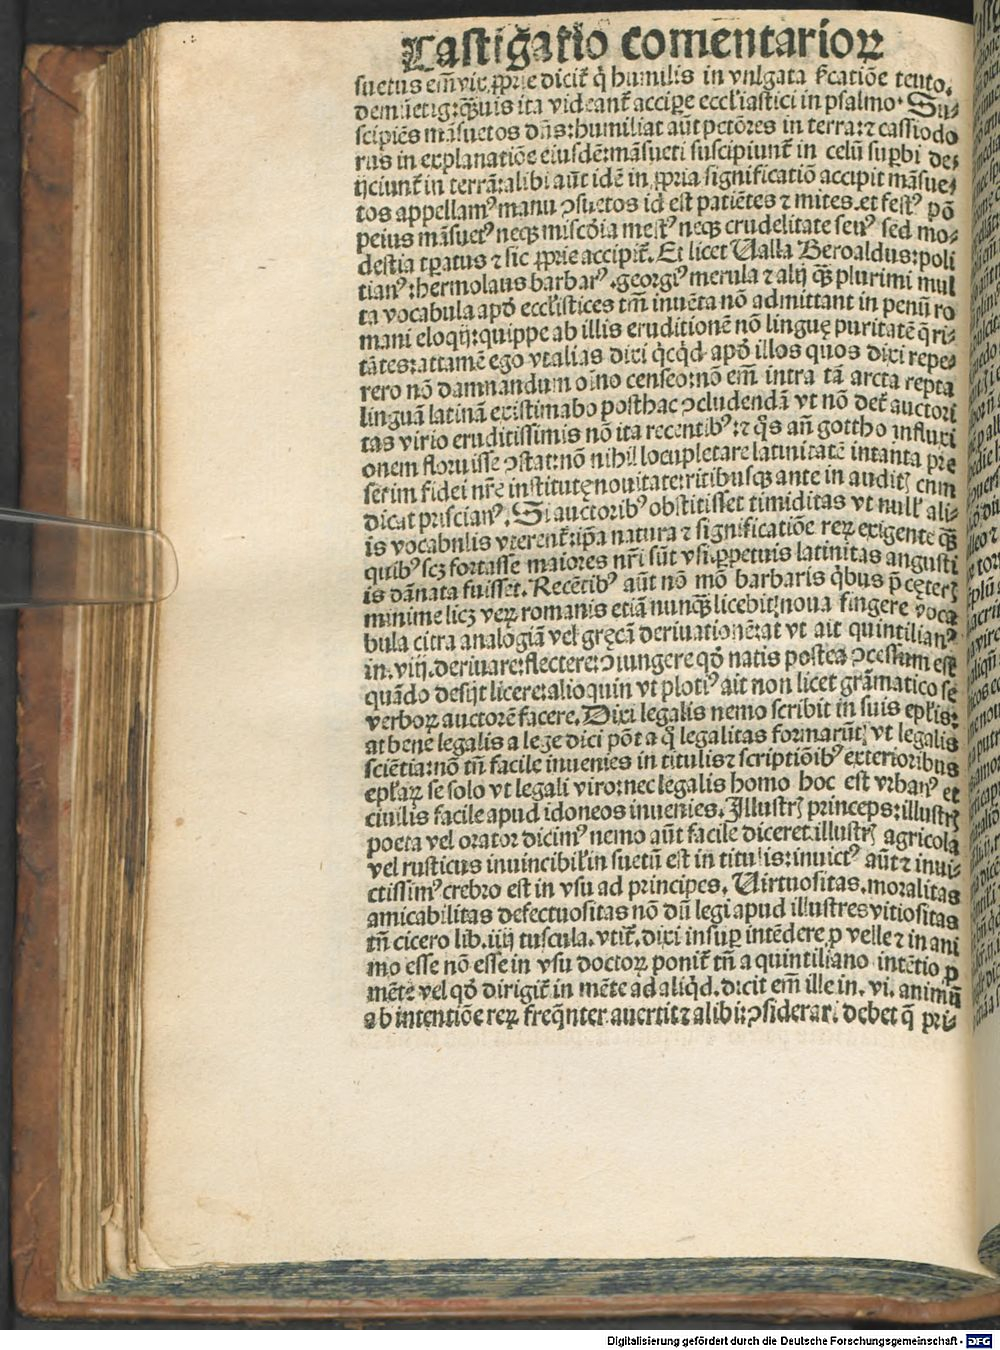 Castigatio comentarioꝝ
suetus em̃ vir ꝓprie dicit᷑ q̇ humilis in vulgata ẜcatiõe teuto.
ita videant᷑ accipe eccl'iastici in psalmo. Su⸗
scipiẽs mãsuetos dñs: humiliat aũt pctõres in terra: ⁊ cassiodo
rus in explanatiõe eiusdẽ: mãsueti suscipiunt᷑ in celũ supbi de⸗
ijciunt᷑ in terrã: alibi aũt idẽ in ꝓpria significatiõ accipit mãsue⸗
tos appellamꝰ manu ꝯsuetos id est patiẽtes ⁊ mites. et festꝰ põ
peius mãsuetꝰ neqꝫ miscȯia mestꝰ neqꝫ crudelitate seuꝰ sed mo⸗
destia tꝑatus ⁊ sic ꝓprie accipit᷑. Et licet Ualla Beroaldus: poli
tianꝰ: hermolaus barbarꝰ. georgiꝰ merula ⁊ alij qꝫ̃ plurimi mul
ta vocabula apd̉ eccl'isticos tm̃ inuẽta nõ admittant in penũ ro
mani eloqij: quippe ab illis eruditionẽ nõ linguę puritatẽ q̃ri⸗
tãtes: attamẽ ego vt alias dixi q̇cq̇d apd̉ illos quos dixi repe⸗
rero nõ damnandum oĩno censeo: nõ em̃ intra tã arcta repta
linguã latinã existimabo posthac ꝯcludendã vt nõ det᷑ auctori
tas virio eruditissimis nõ ita recentibꝰ: ⁊ q̇s añ gottho influxi
onem floruisse ꝯstat: nõ nihil locupletare latinitatẽ intanta pre
sertim fidei nr̃e institutę nouitate: ritibusqꝫ ante in auditꝭ cnm
dicat priscianꝰ. Si auctoribꝰ obstitisset timiditas vt null' ali⸗
is vocabnlis vterent᷑: ip̃a natura ⁊ significatiõe reꝝ exigente qꝫ̃
quibꝰ scꝫ fortasse maiores nr̃i sũt vsi: ꝑpetuis latinitas angusti
is dãnata fuisset. Recẽtibꝰ aũt nõ mõ barbaris q̇bus p̃ cęterꝭ
minime licꝫ veꝝ romanis etiã nunqꝫ̃ licebit: noua fingere voca
bula citra analogiã vel gręcã deriuationẽ: at vt ait quintilianꝰ
in. viij. deriuare: flectere: ꝯiungere qd̉ natis postea ꝯcessum est
quãdo desijt licere: alioquin vt plotiꝰ ait non licet grãmatico se
verboꝝ auctorẽ facere. Dixi legalis nemo scribit in suis epl'is:
at bene legalis a lege dici põt a q̉ legalitas formarũt: vt legalis
sciẽtia: nõ tñ facile inuenies in titulis ⁊ scriptiõibꝰ exterioribus
epl'aꝝ se solo vt legali viro: nec legalis homo hoc est vrbanꝰ et
ciuilis facile apud idoneos inuenies. Illustrꝭ princeps: illustrꝭ
poeta vel orator dicimꝰ nemo aũt facile diceret illustrꝭ agricola
vel rusticus inuincibil' in suetũ est in titulis: inuictꝰ aũt ⁊ inui⸗
ctissimꝰ crebro est in vsu ad principes. Uirtuositas. moralitas
amicabilitas defectuositas nõ dũ legi apud illustres vitiositas
tñ cicero lib. iiij tuscula. vtit᷑. dixi insup intẽdere ꝓ velle ⁊ in ani
mo esse nõ esse in vsu doctoꝝ ponit᷑ tñ a quintiliano intẽtio ꝓ
mẽte vel qd̉ dirigit᷑ in mẽte ad aliq̇d. dicit em̃ ille in. vi. animũ
ab intentiõe reꝝ freq̃nter auertit ⁊ alibi: ꝯsiderarꝭ debet q̃ pri⸗
Digitalisierung gefördert durch die Deutsche Forschungsgemeinschaft - DFG